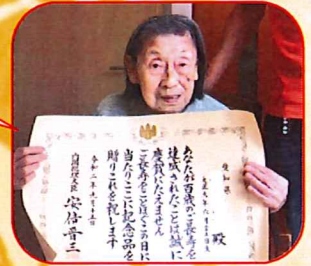 愛知県
殿
あなたが百歳のご長寿を
達成されたことは誠に
慶賀にたえません
ご長寿をことほぐこの日に
当たりここに記念品を
贈りこれを祝します
令和二年九月十五日
内閣総理大臣
安倍晋三